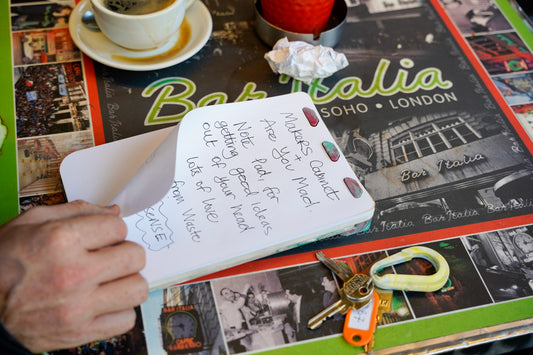 Bar Italia
SOHO • LONDON
MAKERS CABINET
Are you + Mad
Note Pad for
getting good ideas
out of your head
lots of love
from Waste
SENSE
Bar Italia
Bar Italia
Bar Italia